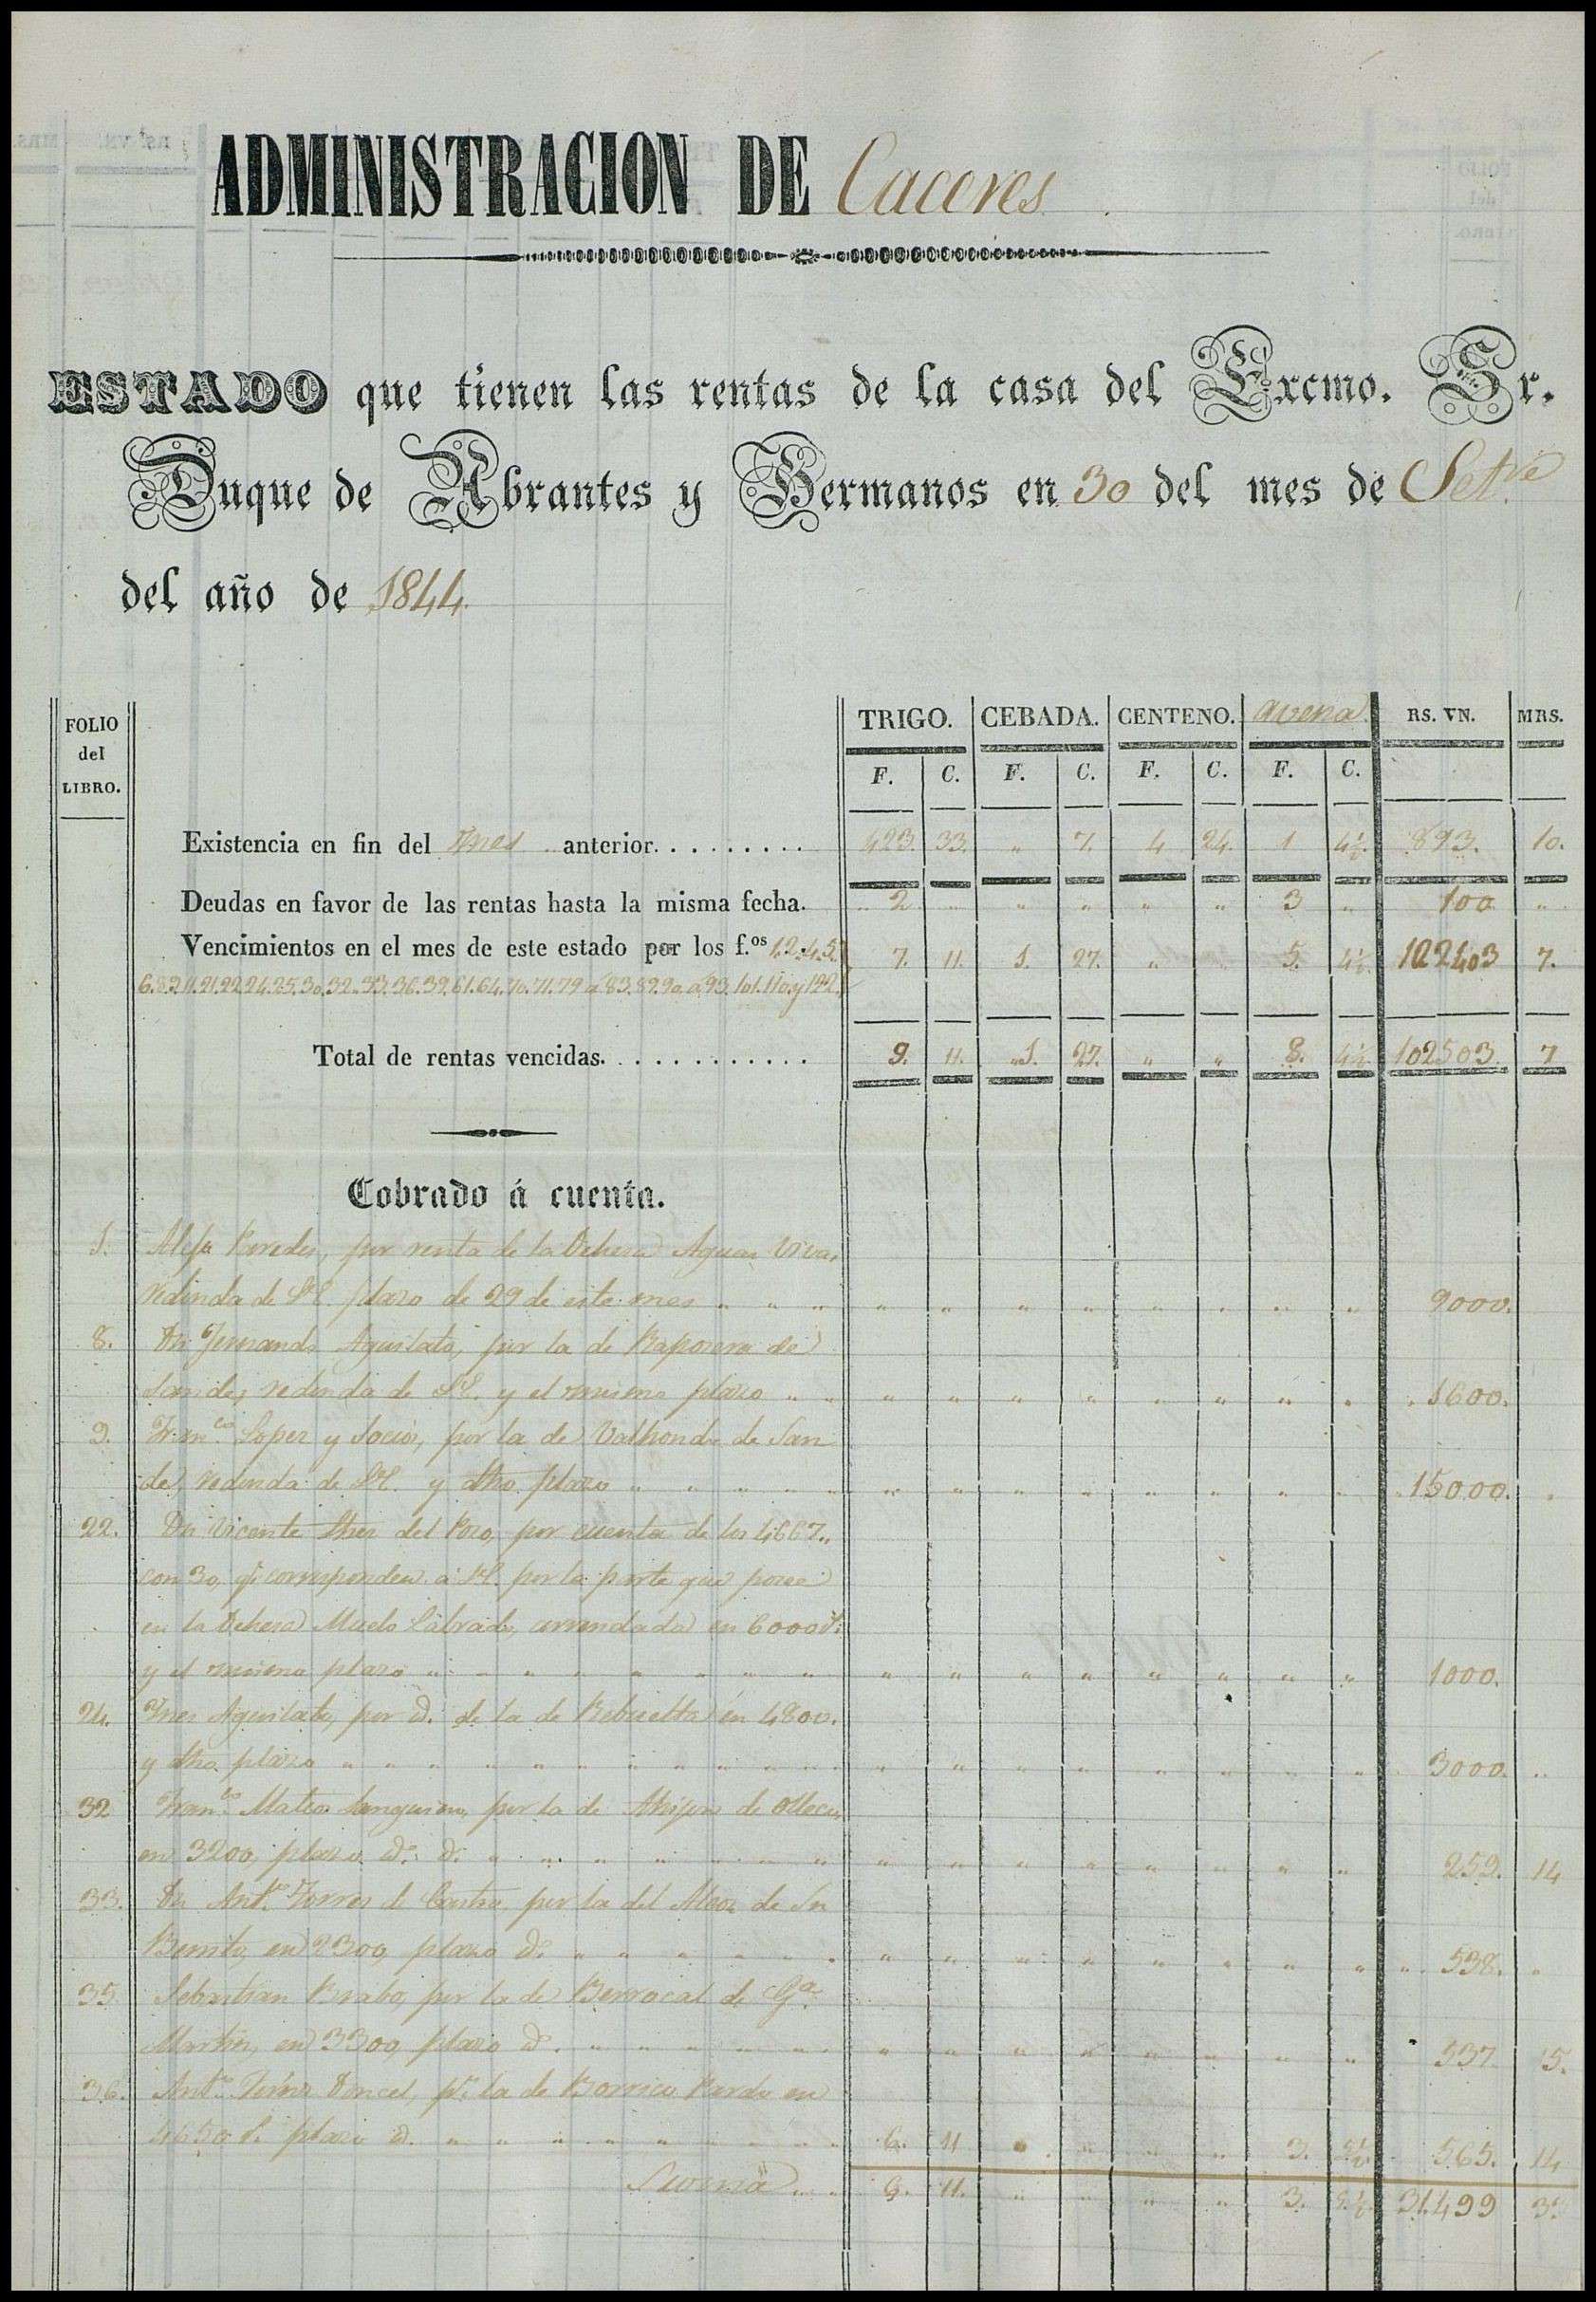 ADMINISTRACION DE Caceres
ESTADO que tienen las rentas de la casa del Excmo. Sr.
Duque de Abrantes y Hermanos en 30 del mes de Setre
del año de 1844.
FOLIO del LIBRO. TRIGO. CEBADA. CENTENO. avena RS. VN. MRS.
F. C. F. C. F. C. F. C.
Existencia en fin del mes anterior. . . . . . . . . 423. 33. " 7. 4 24. 1 4½ 893. 10.
Deudas en favor de las rentas hasta la misma fecha. " 2 " " " " " 3 " 100 "
Vencimientos en el mes de este estado por los f.os 1.2.4.5. 7. 11. 1. 27. " " 5. 4½ 102403 7.
6.8.9.11.21.22.24.25.30.32.33.36.39.61.64.70.71.79 a 83.89.90 a 93.101.110 y 122.
Total de rentas vencidas. . . . . . . . . . . . 9. 11. 1. 27. " " 8. 4½ 102503. 7
Cobrado á cuenta.
1. Paredes, por renta de la Dehesa Aguas Vivas
redinda de S.E. plazo de 29 de este mes " " " " " " " " " " " 9000.
8. Dn Fernando Aguilato, por la de Raposera de
Sande, redinda de S.E. y el mismo plazo " " " " " " " " " " 1600.
9. Franco Lopez y Socios, por la de Valhondo de San
de, redinda de S.E. y dho plazo " " " " " " " " " " " " " 15000.
22. Dn Vicente del Pozo, por cuenta de los 4667..
con 30, q. corresponden a S.E. por la parte que posee
en la Dehesa Labrado, arrendada en 6000
y el mismo plazo " " " " " " " " " " " " " " " " " 1000.
24. Ines Aguilato, por d. de la de Rebuelta en 4800.
y dho plazo " " " " " " " " " " " " " " " " " " " 3000. "
32 Franco Mateos, por la de de
en 3200, plazo do. d. " " " " " " " " " " " " " " " 259. 14
33. Dn Anto Torres de Castro por la del de Sn
Benito, en 2300, plazo do. " " " " " " " " " " " " " " 538. "
35. Sebastian Brabo, por la de Berrocal de Ga
Martin, en 3300, plazo do. " " " " " " " " " " " " " 537 5.
36. Anto Doncel, pr la de Borrico Pardo en
4650 plazo d. " " " " " " " " 6. 11 " " " " 3. 5½ 565. 14
Suma " 6. 11. " " " " 3. 5½ 31.499 3.